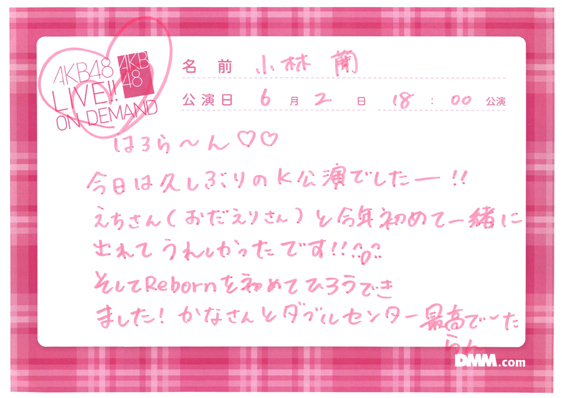 AKB48
LIVE!!
ON DEMAND
AKB
48
名前 小林 蘭
公演日 6月2日 18:00公演
はろら〜ん♡♡
今日は久しぶりのK公演でしたー!!
えちさん(おだえりさん)と今年初めて一緒に
出れてうれしかったです!!
そしてRebornを初めてひろうでき
ました!かなさんとダブルセンター最高で〜た
らん
DMM.com